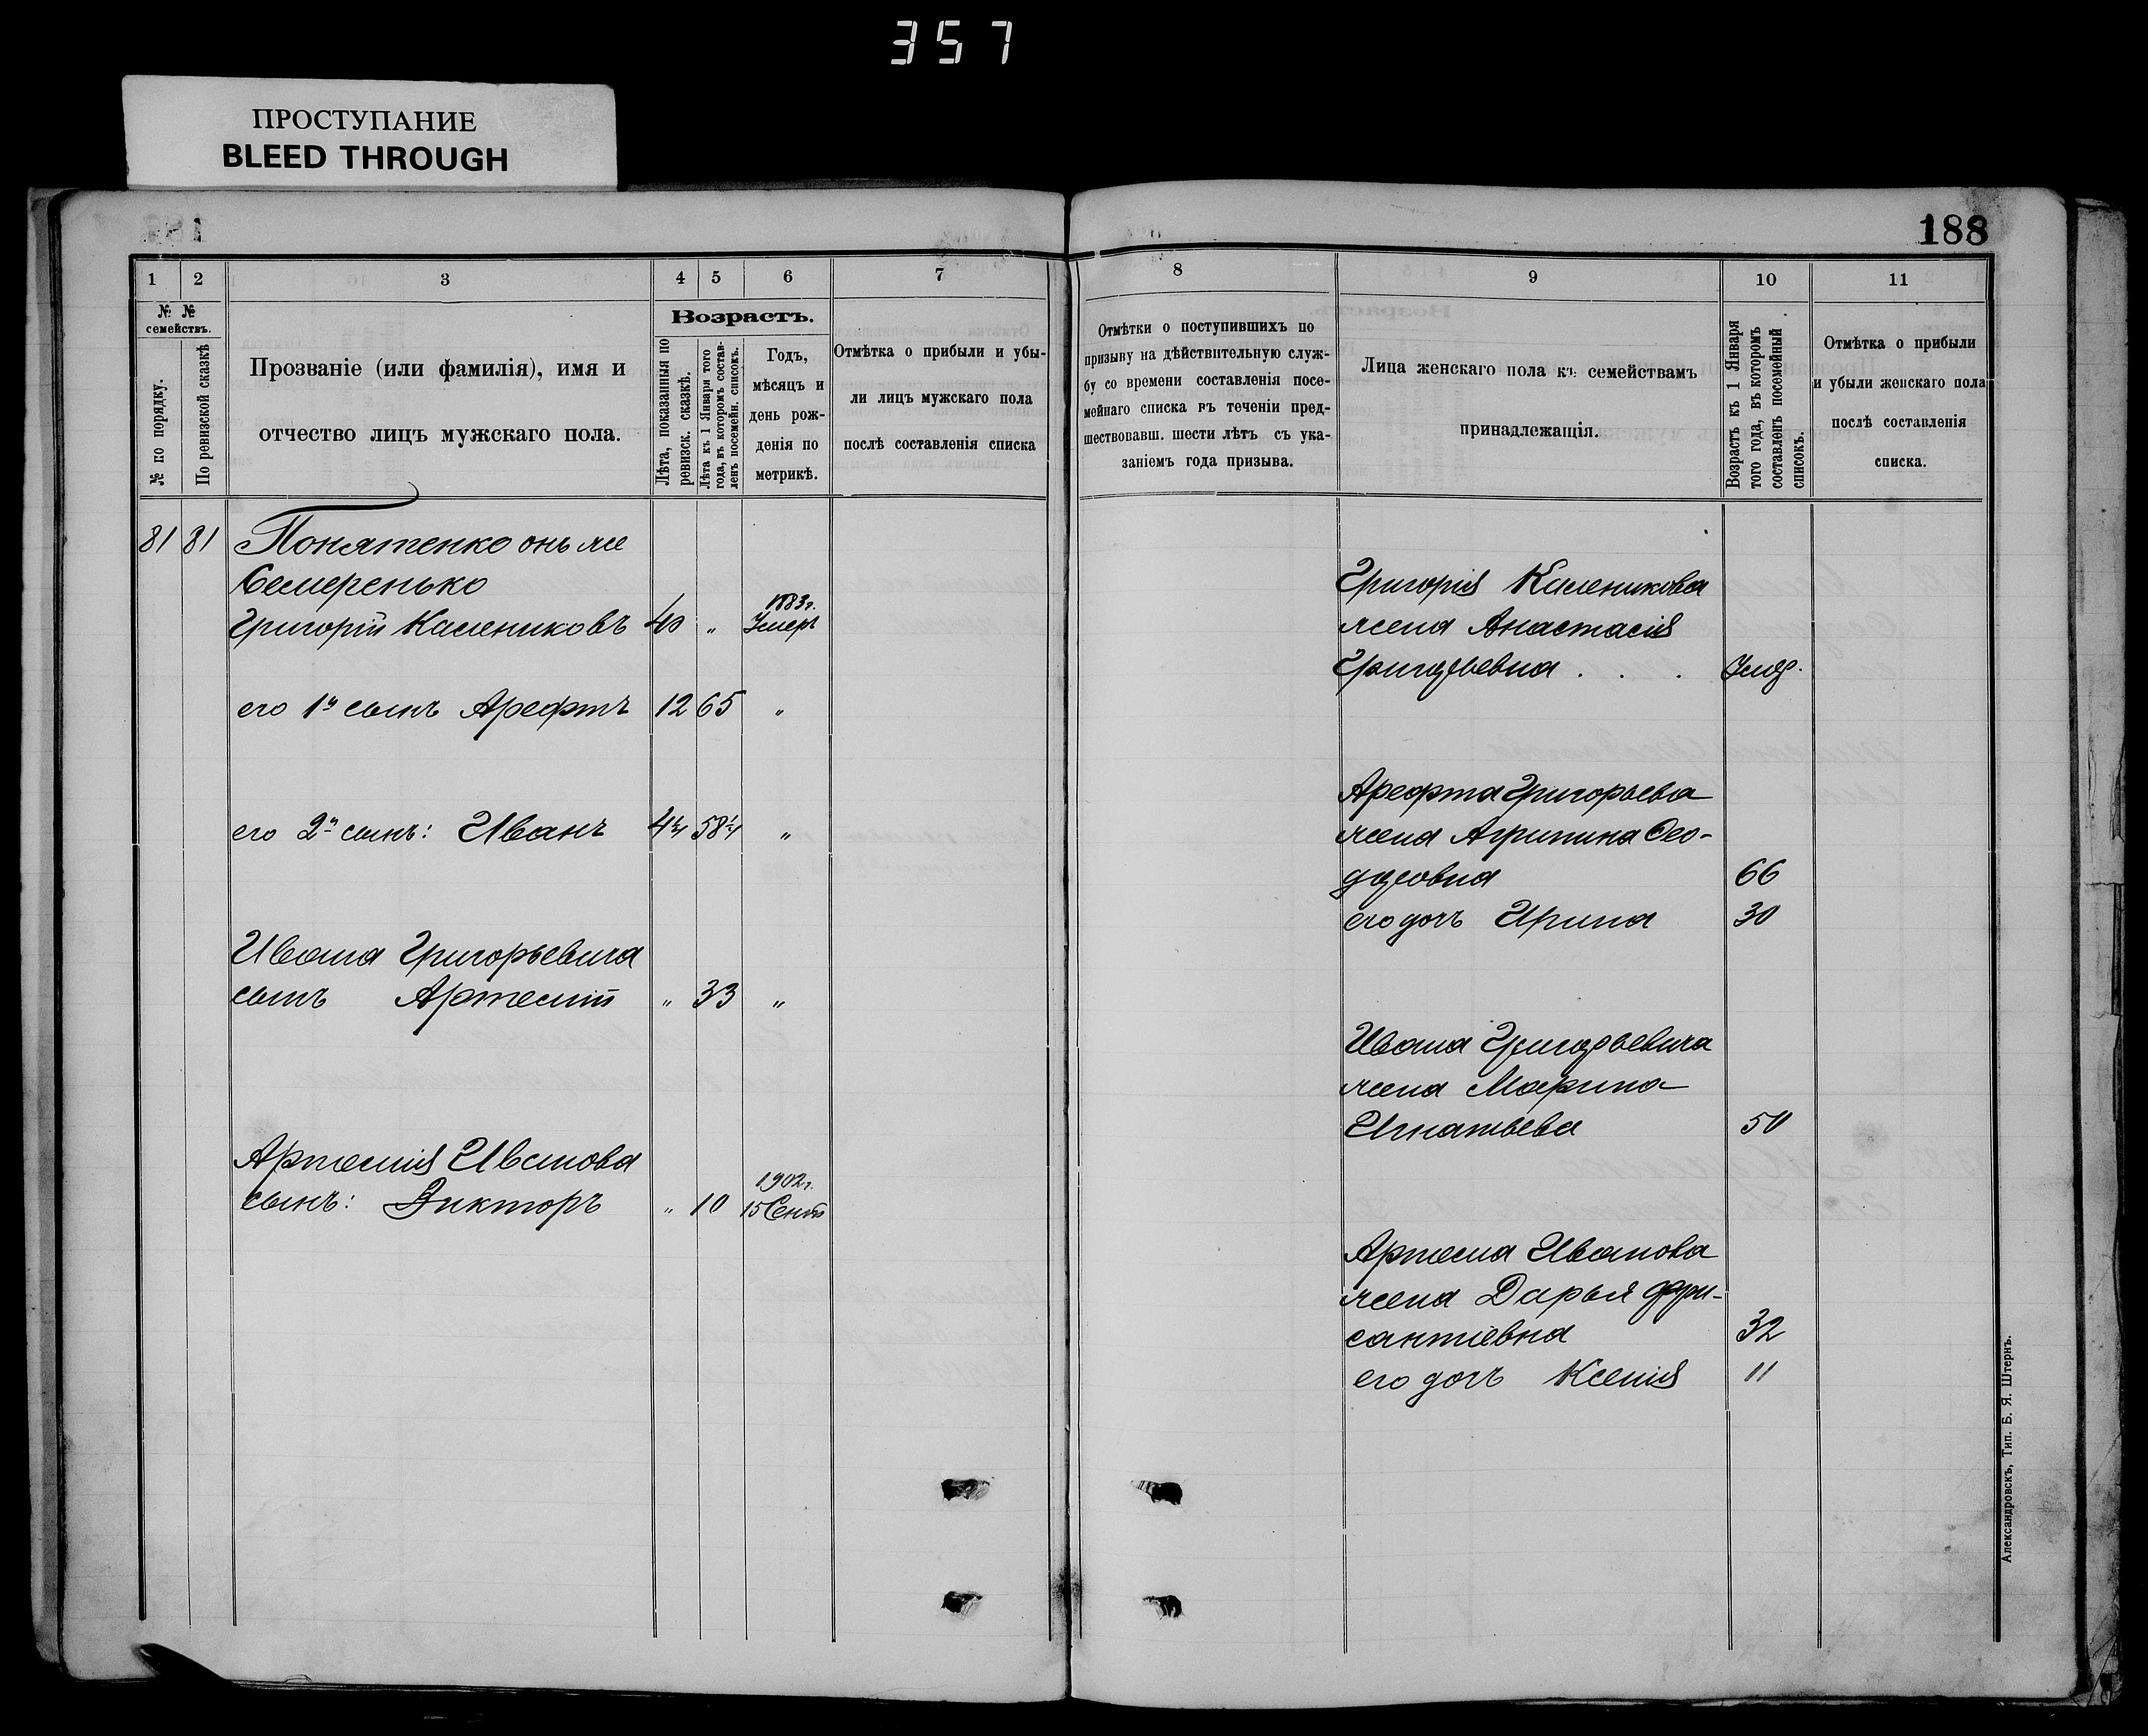 357
ПРОСТУПАНИЕ
BLEED THROUGH
188
1 2 3 4 5 6 7
№ №
семействъ.
№ по порядку.
По ревизской сказкѣ
Прозваніе (или фамилія), имя и
отчество лицъ мужскаго пола.
Возрастъ.
Лѣта, показанныя по
ревизск. сказкѣ.
Лѣта къ 1 Января того
года, въ которомъ состав-
ленъ посемейн. списокъ.
Годъ,
мѣсяцъ и
день рож-
денія по
метрикѣ.
Отмѣтка о прибыли и убы-
ли лицъ мужскаго пола
послѣ составленія списка
81 81 Понятенко онъ же
Семеренько
Григорій Каслениковъ 40 " 1883г. Умеръ
его 1й сынъ Арефтъ 12 65 "
его 2й сынъ: Иванъ 4¼ 58¼ "
Ивана Григорьевича
сынъ Артемій " 33 "
Артемія Иванова
сынъ: Викторъ " 10 1902г. 15 Сент
8 9 10 11
Отмѣтки о поступившихъ по
призыву на дѣйствительную служ-
бу со времени составленія посе-
мейнаго списка въ теченіи пред-
шествовавш. шести лѣтъ съ ука-
заніемъ года призыва.
Лица женскаго пола къ семействамъ
принадлежащія.
Возрастъ къ 1 Января
того года, въ которомъ
составленъ посемейный
списокъ.
Отмѣтка о прибыли
и убыли женскаго пола
послѣ составленія
списка.
Григорія Касленикова
жена Анастасія
Григорьевна . . . Умер.
Арефта Григорьева
жена Агрипина Ѳео-
доровна 66
его дочь Ирина 30
Ивана Григорьевича
жена Марина
Игнатьева 50
Артема Иванова
жена Дарья
сантіевна 32
его дочь Ксенія 11
Александровскъ, Тип. Б. Я. Штернъ.